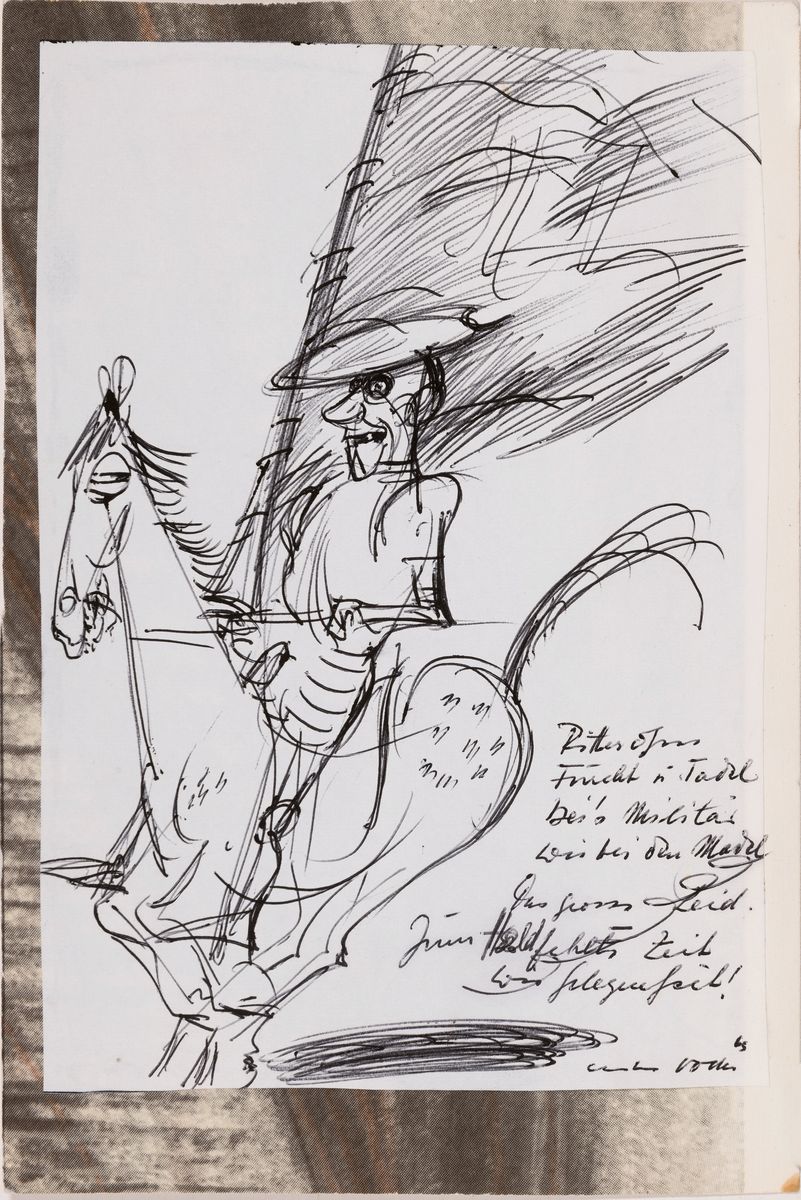 Ritter ohne
Furcht u Tadel
bei's Militär
wie bei den Madel
Das grosse Leid.
Zum Held fehlts Zeit
wie Gelegenheit!